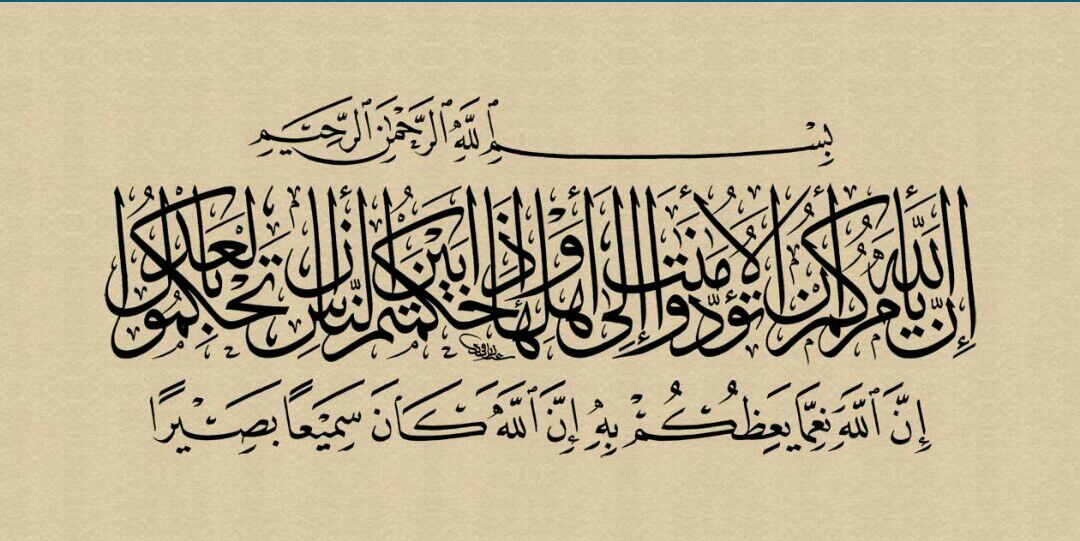 بِسْمِ ٱللَّهِ ٱلرَّحْمَٰنِ ٱلرَّحِيمِ
إِنَّ ٱللَّهَ يَأْمُرُكُمْ أَن تُؤَدُّوا۟ ٱلْأَمَٰنَٰتِ إِلَىٰٓ أَهْلِهَا وَإِذَا حَكَمْتُم بَيْنَ ٱلنَّاسِ أَن تَحْكُمُوا۟ بِٱلْعَدْلِ
إِنَّ ٱللَّهَ نِعِمَّا يَعِظُكُمْ بِهِ إِنَّ ٱللَّهَ كَانَ سَمِيعًا بَصِيرًا